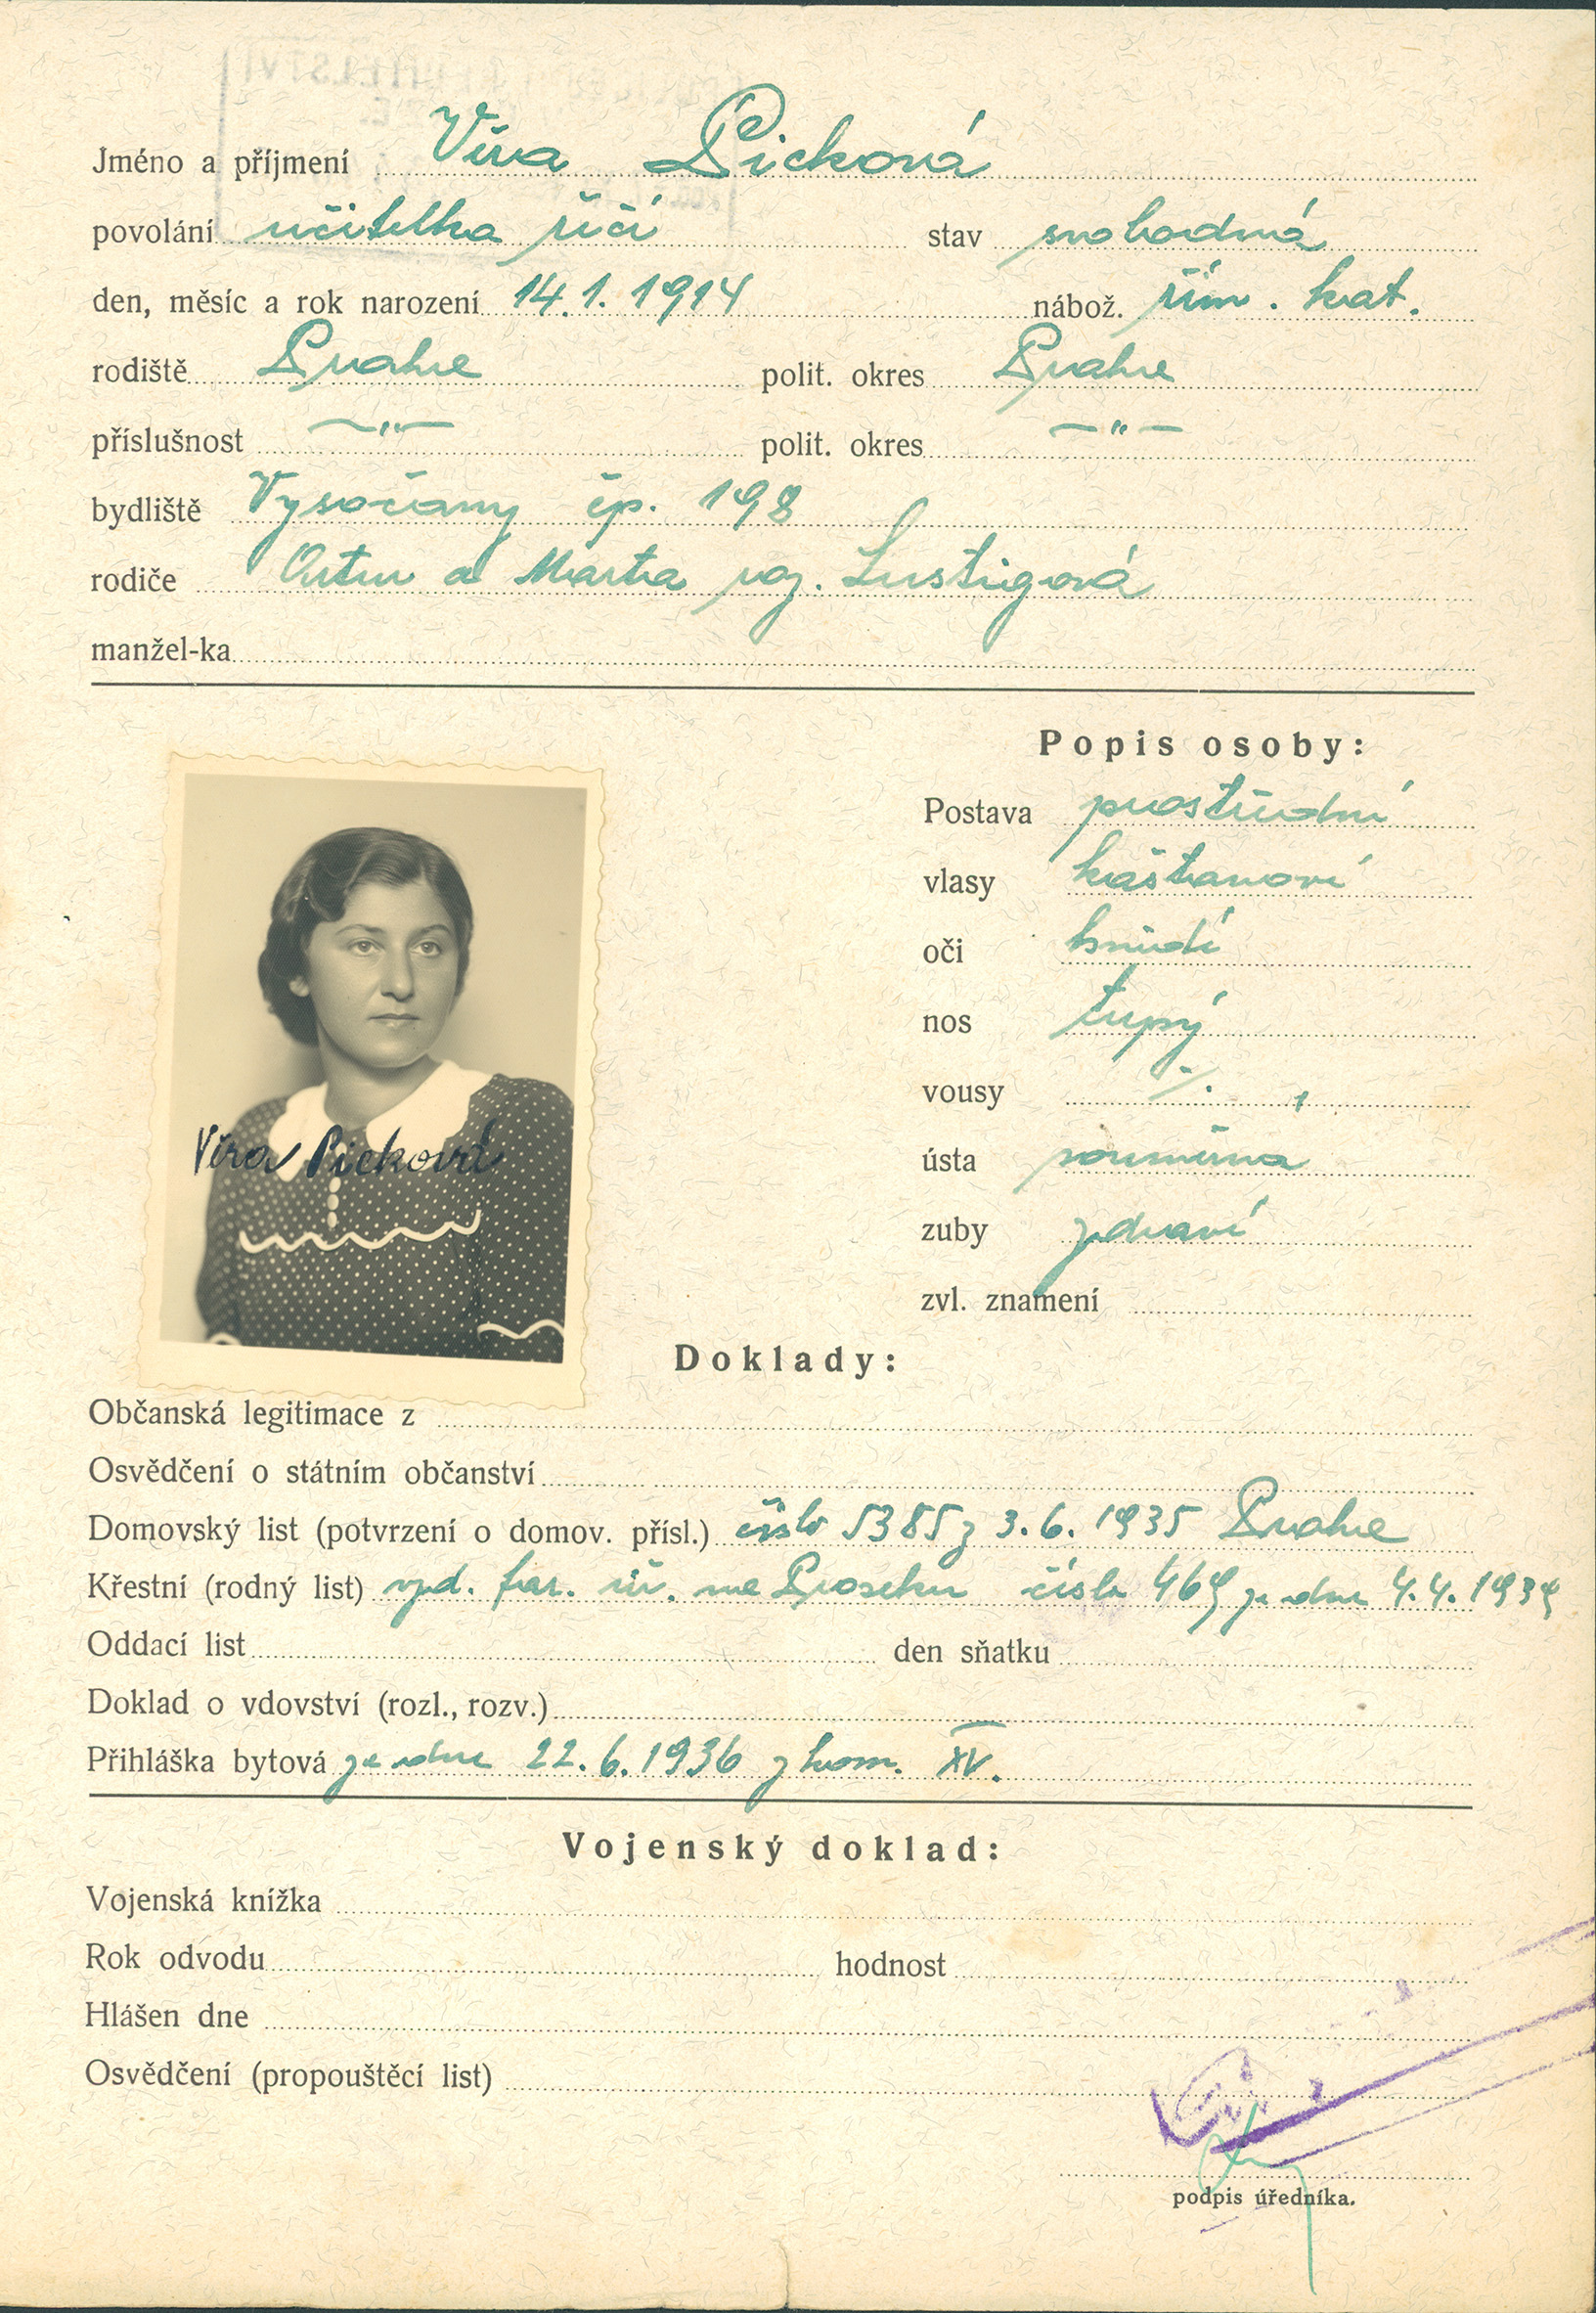 Jméno a příjmení Věra Picková
povolání učitelka řečí stav svobodná
den, měsíc a rok narození 14.1.1914 nábož. řím. kat.
rodiště Praha polit. okres Praha
příslušnost —"— polit. okres —"—
bydliště Vysočany čp. 198
rodiče Artur a Marta roz. Lustigová
manžel-ka
Popis osoby:
Postava prostřední
vlasy kaštanové
oči hnědé
nos tupý
vousy ./.
ústa souměrná
zuby zdravé
zvl. znamení
Věra Picková
Doklady:
Občanská legitimace z
Osvědčení o státním občanství
Domovský list (potvrzení o domov. přísl.) číslo 5385 z 3.6.1935 Praha
Křestní (rodný list) vyd. far. úř. na Proseku číslo 469 ze dne 4.4.1939
Oddací list den sňatku
Doklad o vdovství (rozl., rozv.)
Přihláška bytová ze dne 22.6.1936 z kom. XV.
Vojenský doklad:
Vojenská knížka
Rok odvodu hodnost
Hlášen dne
Osvědčení (propouštěcí list)
podpis úředníka.